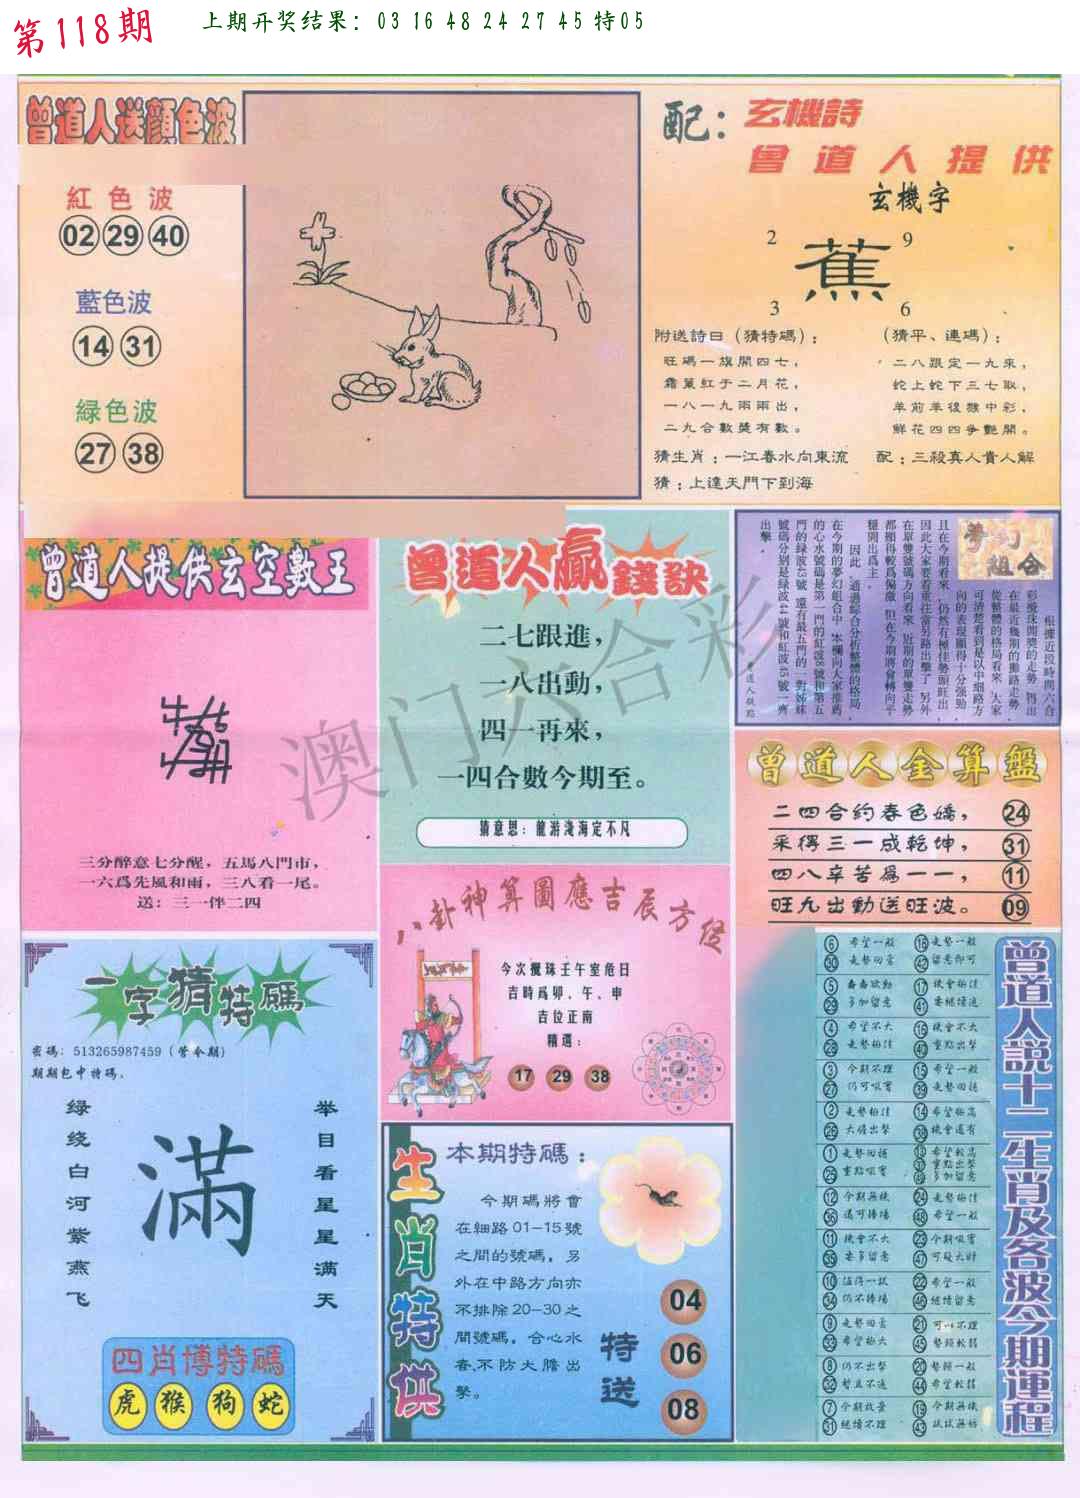 第118期
上期开奖结果：03 16 48 24 27 45 特05
曾道人送顏色波
紅色波
02 29 40
藍色波
14 31
緑色波
27 38
配：玄機詩
曾道人提供
玄機字
2 9
蕉
3 6
附送詩曰（猜特碼）：
旺碼一旗開四七，
霜葉紅于二月花，
一八一九兩兩出，
二九合數獎有數。
猜生肖：一江春水向東流
猜：上達天門下到海
（猜平、連碼）：
二八跟定一九來，
蛇上蛇下三七取，
羊前羊後猴中彩，
鮮花四四爭艷開。
配：三殺真人貴人解
曾道人提供玄空數王
三分醉意七分醒，五馬八門市，
一六爲先風和雨，三八看一尾。
送：三一伴二四
曾道人贏錢訣
二七跟進，
一八出動，
四一再來，
一四合數今期至。
猜意思：龍游淺海定不凡
澳门六合彩
夢幻組合
根據近段時間六合
彩攪珠開獎的走勢，得出
在最近幾期的攤路走勢，
從整體的格局看來，大家
可清楚看到是以中細路方
向的表現顯得十分强勁，
且在今期看來，仍然有極佳勢頭旺出，
因此大家要着重注當另路出擊了，另外
在單雙號碼方向看來，近期的單雙走勢
都顯得較爲偏激，但在今期將會轉向平
穩開出爲主。
因此，通過綜合分析整體的格局，
在今期的夢幻組合中，本欄向大家推薦
的心水號碼是第一門的紅波8號和第五
門的緑波43號，還有最五門的一對姊妹
號碼分别是緑波44號和紅波45號一齊
出擊。
曾道人金算盤
二四合約春色嬌， 24
采得三一成乾坤， 31
四八辛苦爲一一， 11
旺九出動送旺波。 09
八卦神算圖應吉辰方位
今次攪珠壬午室危日
吉時爲卯、午、申
吉位正南
精選：
17 29 38
一字猜特碼
密碼：513265987459（管令期）
期期包中特碼。
绿绕白河紫燕飞
滿
举目看星星满天
四肖博特碼
虎 猴 狗 蛇
生肖特供
本期特碼：
今期碼將會
在細路01-15號
之間的號碼，另
外在中路方向亦
不排除20-30之
間號碼，合心水
者不防大膽出
擊。
特送
04
06
08
曾道人説十二生肖及各波今期運程
6 希望一般 18 走勢一般
30 走勢回富 42 留意即可
5 蠢蠢欲動 17 機會極佳
29 多加留意 41 要繼續追
4 希望不大 16 機會不大
28 走勢極佳 40 重點出擊
3 今期不理 15 希望一般
27 仍可吸實 39 走勢回穩
2 走勢極佳 14 希望極高
26 大膽出擊 38 機會還有
1 走勢回穩 13 希望較高
25 重點吸實 37 重點出擊
49 多加留意
12 今期無機 24 走勢極佳
36 還可捧場 48 希望一般
11 機會不大 23 今期吸實
35 要多留意 47 可疑大財
10 值得一試 22 希望一般
34 仍不捧場 46 繼續留意
9 走勢回富 21 可以不理
33 希望極大 45 勢頭較弱
8 仍不出擊 20 勢頭一般
32 暫且不追 44 希望較弱
7 今期放量 19 今期無機
31 繼續不理 43 試試無妨